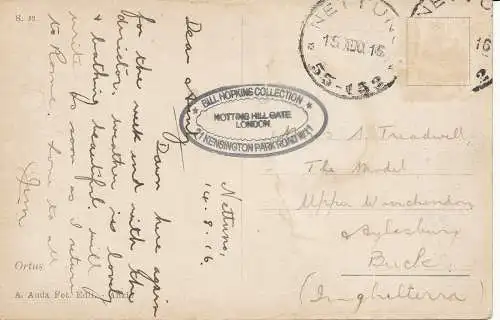 S. 32
NETTUNO
15 AGO. 16
55-152
16
2
BILL HOPKINS COLLECTION
NOTTING HILL GATE
LONDON
21 KENSINGTON PARK ROAD W11
Nettuno,
14.8.16.
Dear
Down here again
for the week end with the
weather is lovely
& bathing beautiful. will
write as soon as I return
to Rome. Love to all
Jim
S. Treadwell,
The Model
Upper Winchendon
Aylesbury
Buck.
(Inghilterra)
Ortus
A. Auda Fot. Edit.